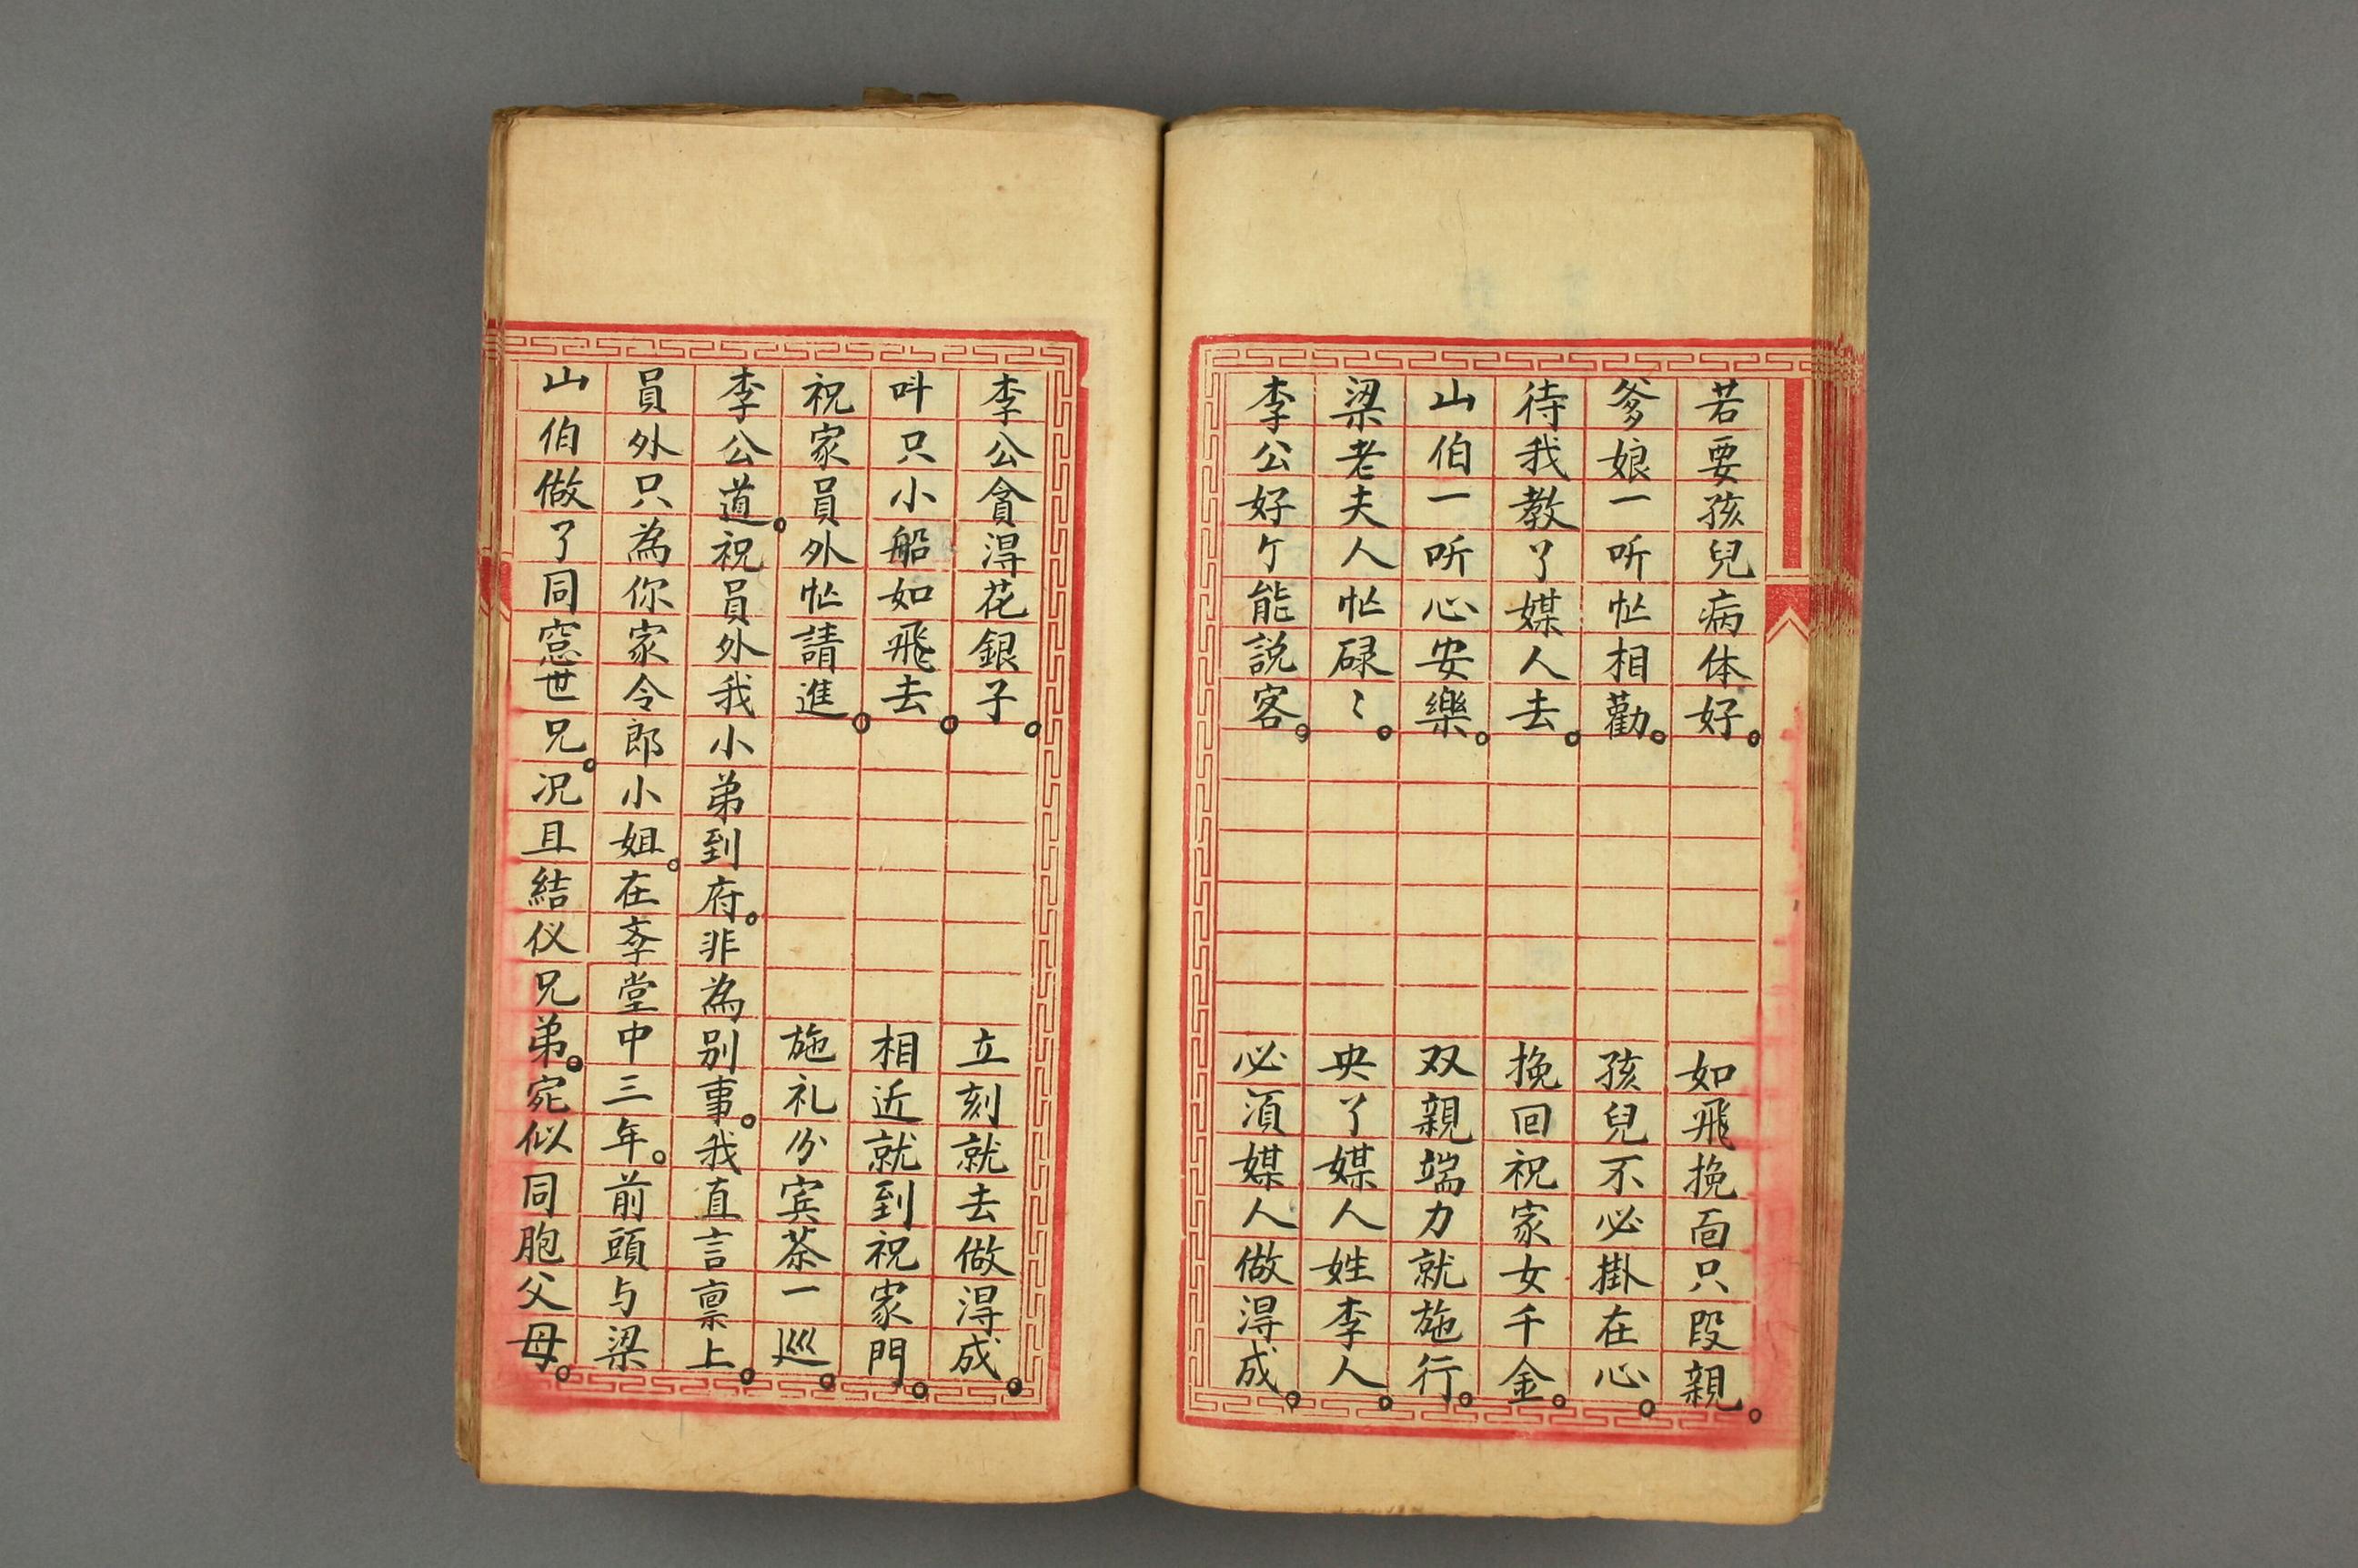 若要孩兒病体好。如飛挽面只段親。
爹娘一听忙相勸。孩兒不必掛在心。
待我教了媒人去。挽回祝家女千金。
山伯一听心安樂。双親端力就施行。
梁老夫人忙碌〻。央了媒人姓李人。
李公好个能説客。必須媒人做淂成。
李公貪淂花銀子。立刻就去做淂成。
呌只小船如飛去。相近就到祝家門。
祝家員外忙請進。施礼分宾茶一巡。
李公道。祝員外我小弟到府。非為别事。我直言禀上。
員外只為你家令郎小姐。在斈堂中三年。前頭与梁
山伯做了同窓世兄。况且結仪兄弟。宛似同胞父母。